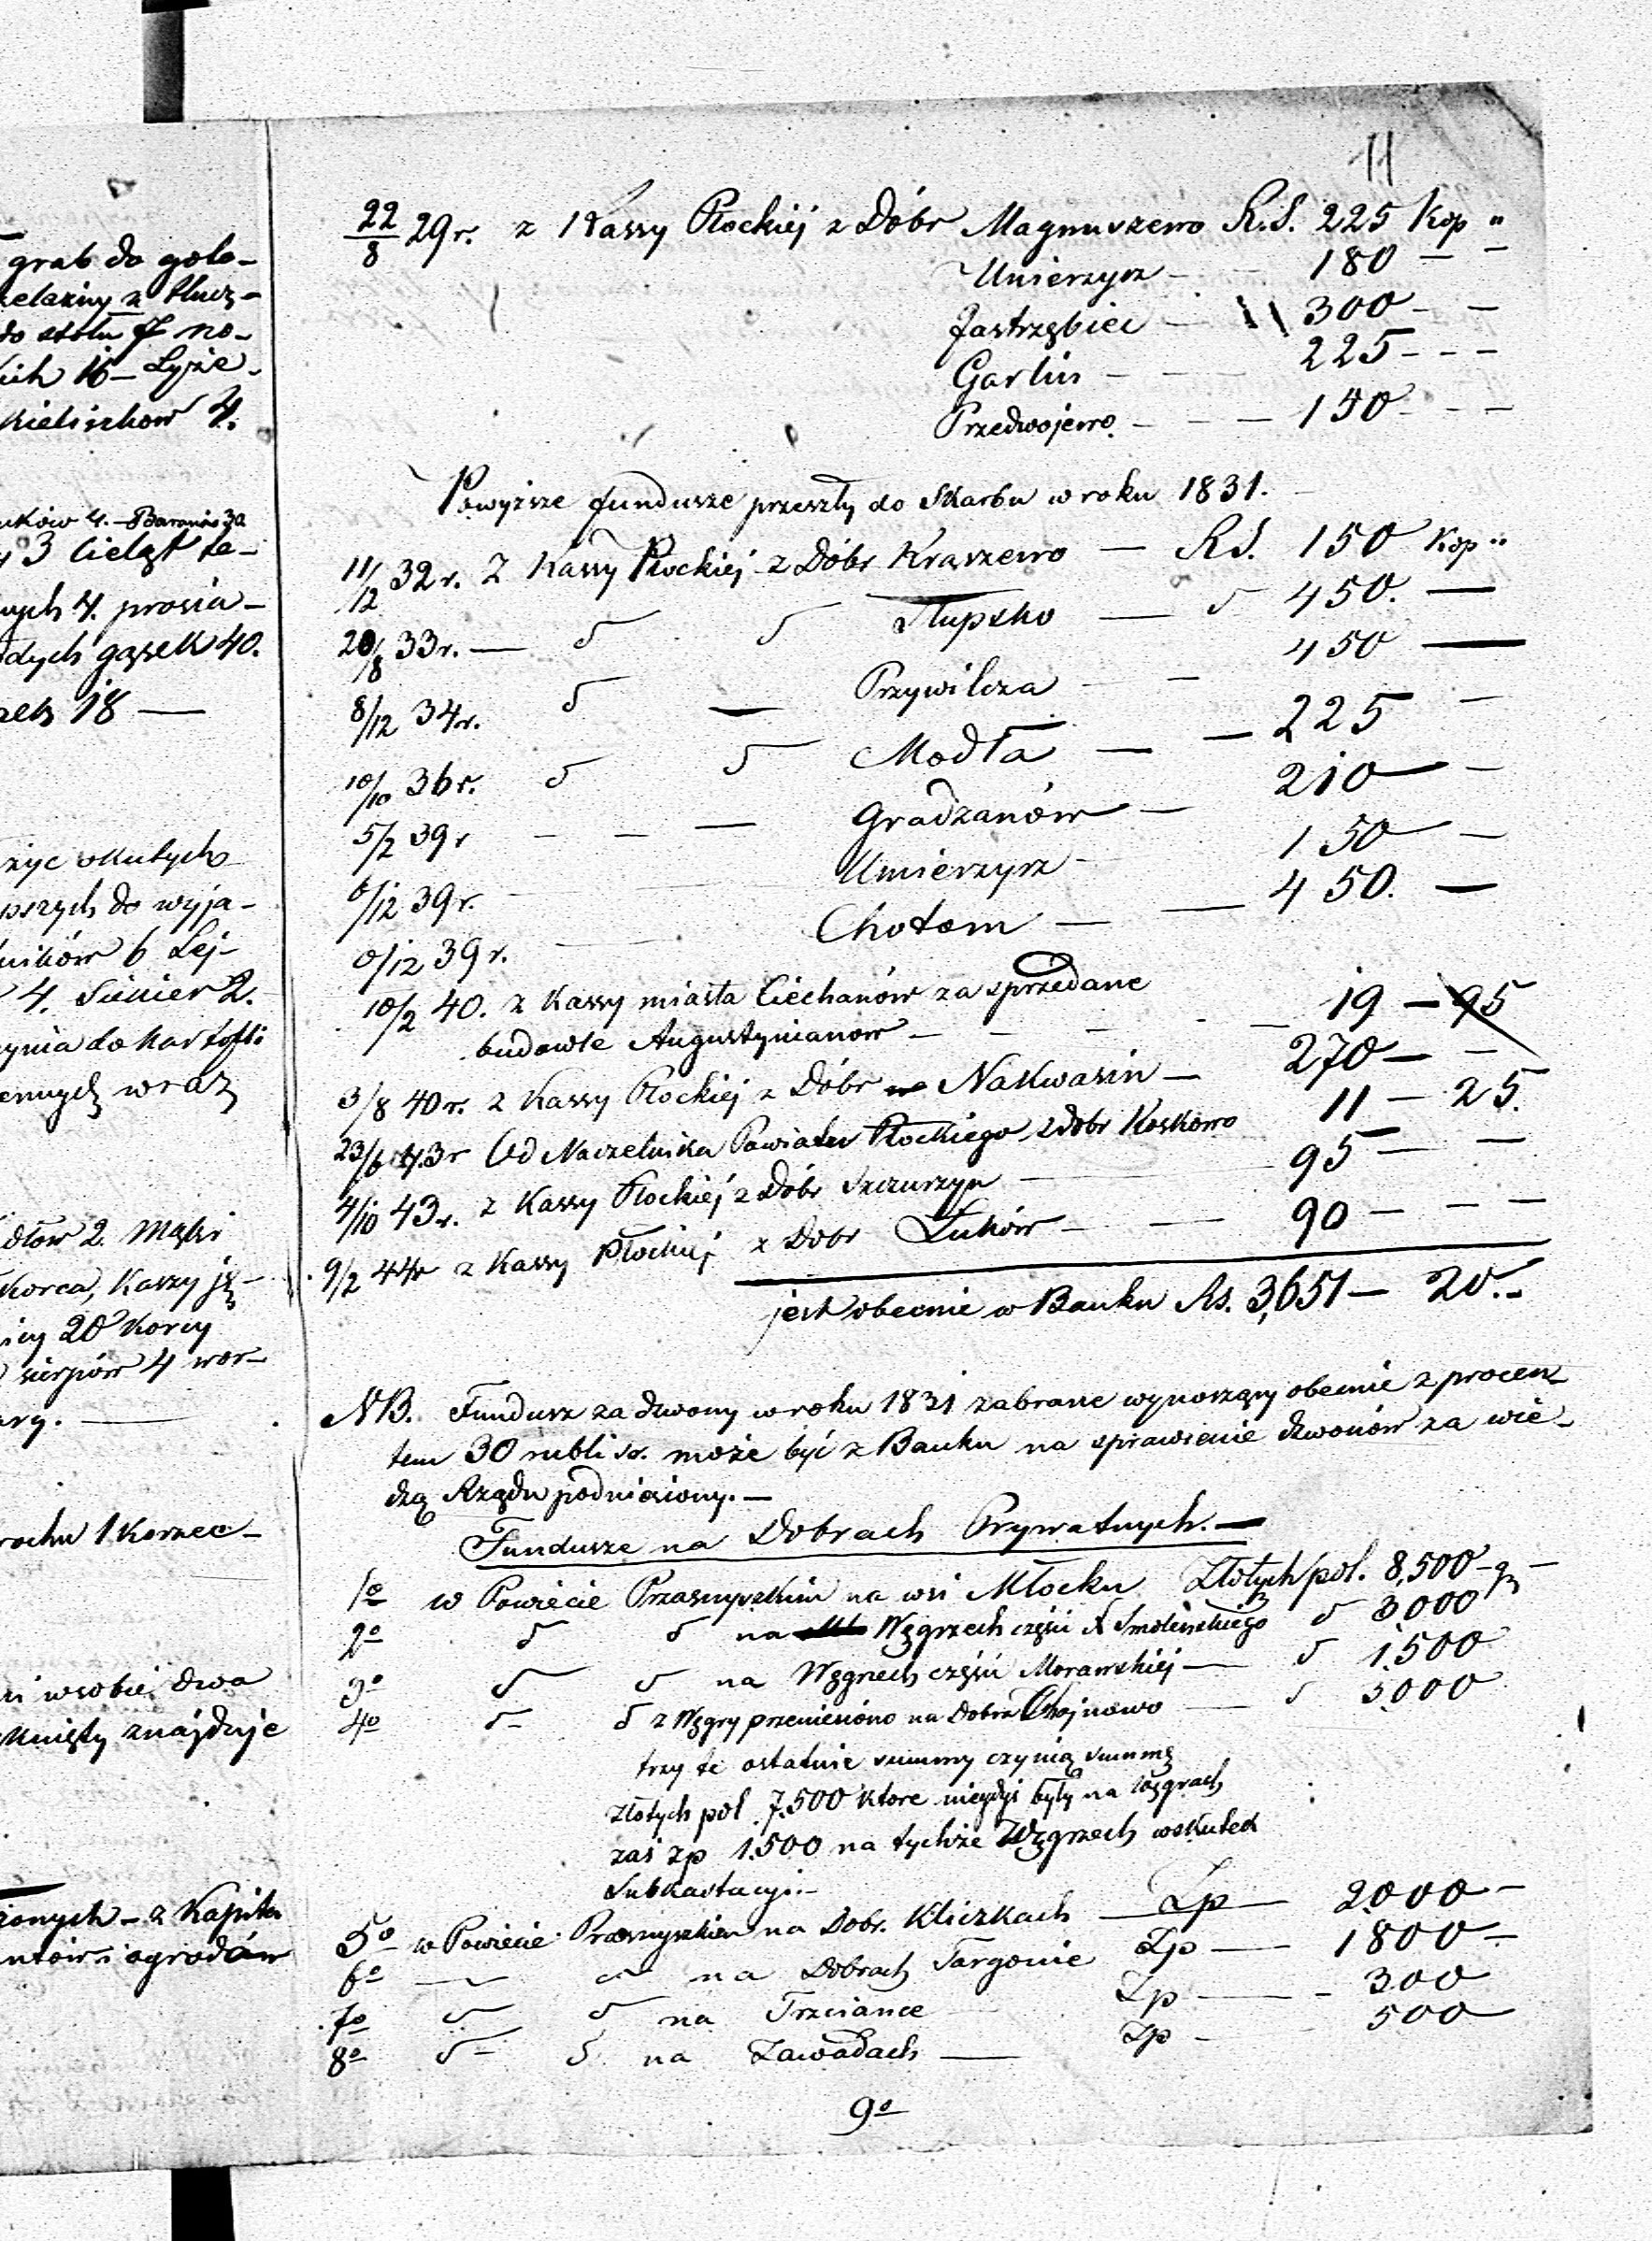 grab do goło-
z tłucz-
do stołu no-
16 – Łyże-
Kieliszkow 4.
4. – Baranów 30
3 Cieląt
4. prosia-
gąsek 40.
18 —
okutych
do wyja-
6 Lej-
4. Siekier 2.
do Kartofli
wraz
2. Mąki
Korca, Kaszy
20 Korcy
sierpów 4 wor-
1 Korzec –
w sobie dwa
znajduje
– z Kapita
i ogrodów
11
22/8 29 r. z Kassy Płockiej z Dóbr Magnuszewo R.S. 225 Kop "
Unierzysz – – 180 – –
Jastrzębiec – 300 – –
Garlin – – 225 – – –
Przedwojewo – – – 150 – –
Powyższe fundusze przeszły do Skarbu w roku 1831.
11/12 32 r. Z Kassy Płockiej z Dóbr Kraszewo — RS. 150 Kop "
20/8 33 r. — Słupsko — 450. —
8/12 34 r. — Przywilcza – – 450 —
10/10 36 r. Modła — — 225 –
5/2 39 r – – — Gradzanów – 210 – –
6/12 39 r. Unierzysz – 150 –
6/12 39 r. Chotom — — 450. —
10/2 40. z Kassy miasta Ciechanów za sprzedane
budowle Augustynianow – – – – 19 – 95
3/8 40 r. z Kassy Płockiej z Dóbr Nakwasin — 270 – –
23/6 43 r Od Naczelnika Powiatu Płockiego z dóbr Koskowo 11 – 25.
4/10 43 r. z Kassy Płockiej z Dóbr Szczurzyn 95 – –
9/2 44 r z Kassy Płockiej z Dobr Luków – — 90 – – –
jest obecnie w Banku Rs. 3,651 – 20. –
NB. Fundusz za dzwony w roku 1831 zabrane wynoszący obecnie z procen
tem 30 rubli sr. może być z Banku na sprawienie dzwonów za wie-
dzą Rządu podniesiony. —
Fundusze na Dobrach Prywatnych. —
1o w Powiecie Przasnyszkim na wsi Młocku Złotych pol. 8,500 – –
2o na Węgrzech części Smolińskiego 3000
3o na Węgrzech części Morawskiej — 1.500
4o z Węgry przeniesiono na Dobra Chojnowo — 3.000
trzy te ostatnie summy czynią summę
złotych pol. 7.500 ktore niegdyś były na Węgrach
zaś zp 1.500 na tychże Węgrzech wskutek
Subhastacyi. –
5o w Powiecie Przasnyszkim na Dobr. Kliczkach — Zp — 2000 –
6o — na Dobrach Targonie Zp — 1800 –
7o na Trzciance Zp — – 300
8o na Zawadach — Zp – 500
9o